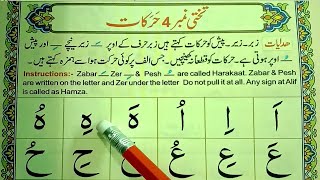 تختی نمبر 4 حَرَکات
ھدایات زبر۔ زیر۔ پیش کو حرکات کہتے ہیں زبر حرف کے اوپر زیر نیچے اور پیش
اوپر ہوتی ہے۔ حرکات کو قطعاً نہ کھینچیں۔ جس الف پر کوئی حرکت ہو اسے ہمزہ کہتے ہیں۔
Instructions:- Zabar Zer & Pesh are called Harakaat. Zabar & Pesh
are written on the letter and Zer under the letter Do not pull it at all. Any sign at Alif
is called as Hamza.
اَ اِ اُ هَ هِ هُ
عَ عِ عُ حَ حِ حُ